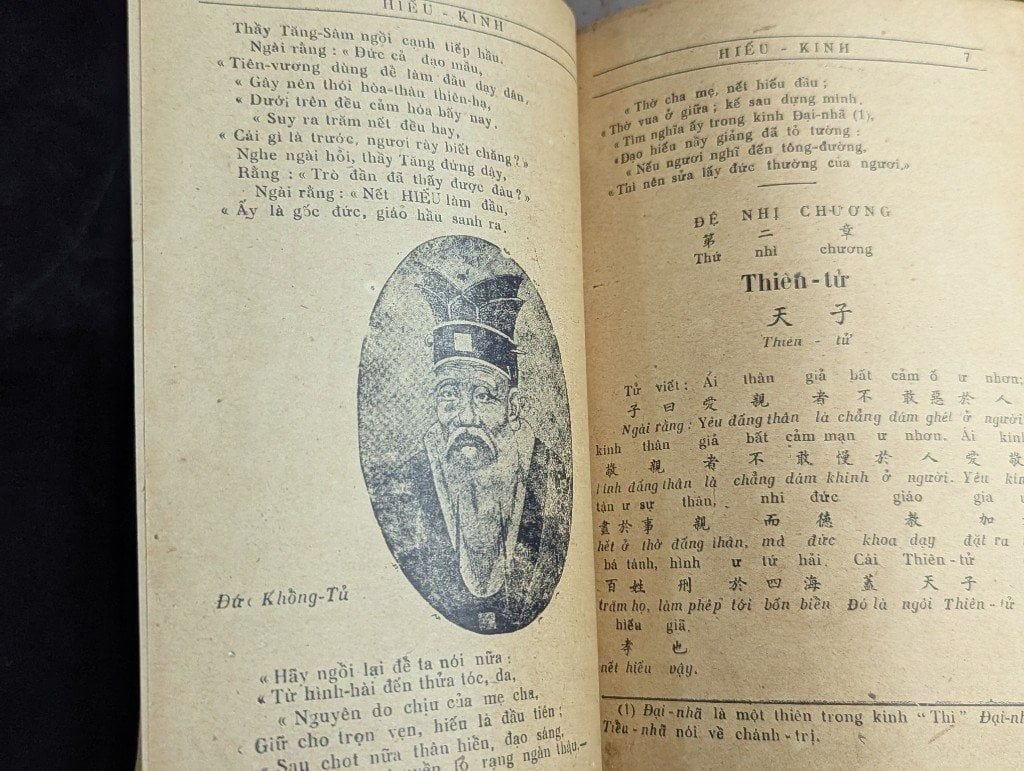 HIẾU - KINH
Thầy Tăng-Sâm ngồi cạnh tiếp hầu.
Ngài rằng : « Đức cả đạo mầu,
« Tiên-vương dùng để làm đầu dạy dân.
« Gây nên thói hòa-thân thiên-hạ,
« Dưới trên đều cảm hóa bấy nay.
« Suy ra trăm nết đều hay,
« Cái gì là trước, ngươi rày biết chăng? »
Nghe ngài hỏi, thầy Tăng đứng dậy,
Rằng : « Trò đần đã thấy được đâu? »
Ngài rằng : « Nết HIẾU làm đầu,
« Ấy là gốc đức, giáo hầu sanh ra.
Đức Khổng-Tử
« Hãy ngồi lại để ta nói nữa :
« Từ hình-hài đến thửa tóc, da,
« Nguyên do chịu của mẹ cha,
« Giữ cho trọn vẹn, hiếu là đầu tiên ;
« Sau chót nữa thân hiển, đạo sáng,
rõ rạng ngàn thâu.—
HIẾU - KINH 7
« Thờ cha mẹ, nết hiếu đầu ;
« Thờ vua ở giữa ; kế sau dựng mình.
« Tìm nghĩa ấy trong kinh Đại-nhã (1),
« Đạo hiếu nầy giảng đã tỏ tường :
« Nếu ngươi nghĩ đến tông-đường,
« Thì nên sửa lấy đức thường của ngươi.»
ĐỆ NHỊ CHƯƠNG
第 二 章
Thứ nhì chương
Thiên-tử
天 子
Thiên - tử
Tử viết : Ái thân giả bất cảm ố ư nhơn;
子 曰 愛 親 者 不 敢 惡 於 人
Ngài rằng : Yêu đấng thân là chẳng dám ghét ở người
kinh thân giả bất cảm mạn ư nhơn. Ái kinh
敬 親 者 不 敢 慢 於 人 愛 敬
kính đấng thân là chẳng dám khinh ở người. Yêu kín
tận ư sự thân, nhi đức giáo gia
盡 於 事 親 而 德 教 加
hết ở thờ đấng thân, mà đức khoa dạy đặt ra
bá tánh, hình ư tứ hải. Cái Thiên-tử
百 姓 刑 於 四 海 蓋 天 子
trăm họ, làm phép tới bốn biển Đó là ngôi Thiên-tử
hiếu giã.
孝 也
nết hiếu vậy.
(1) Đại-nhã là một thiên trong kinh "Thi" Đại-nh
Tiểu-nhã nói về chánh-trị.